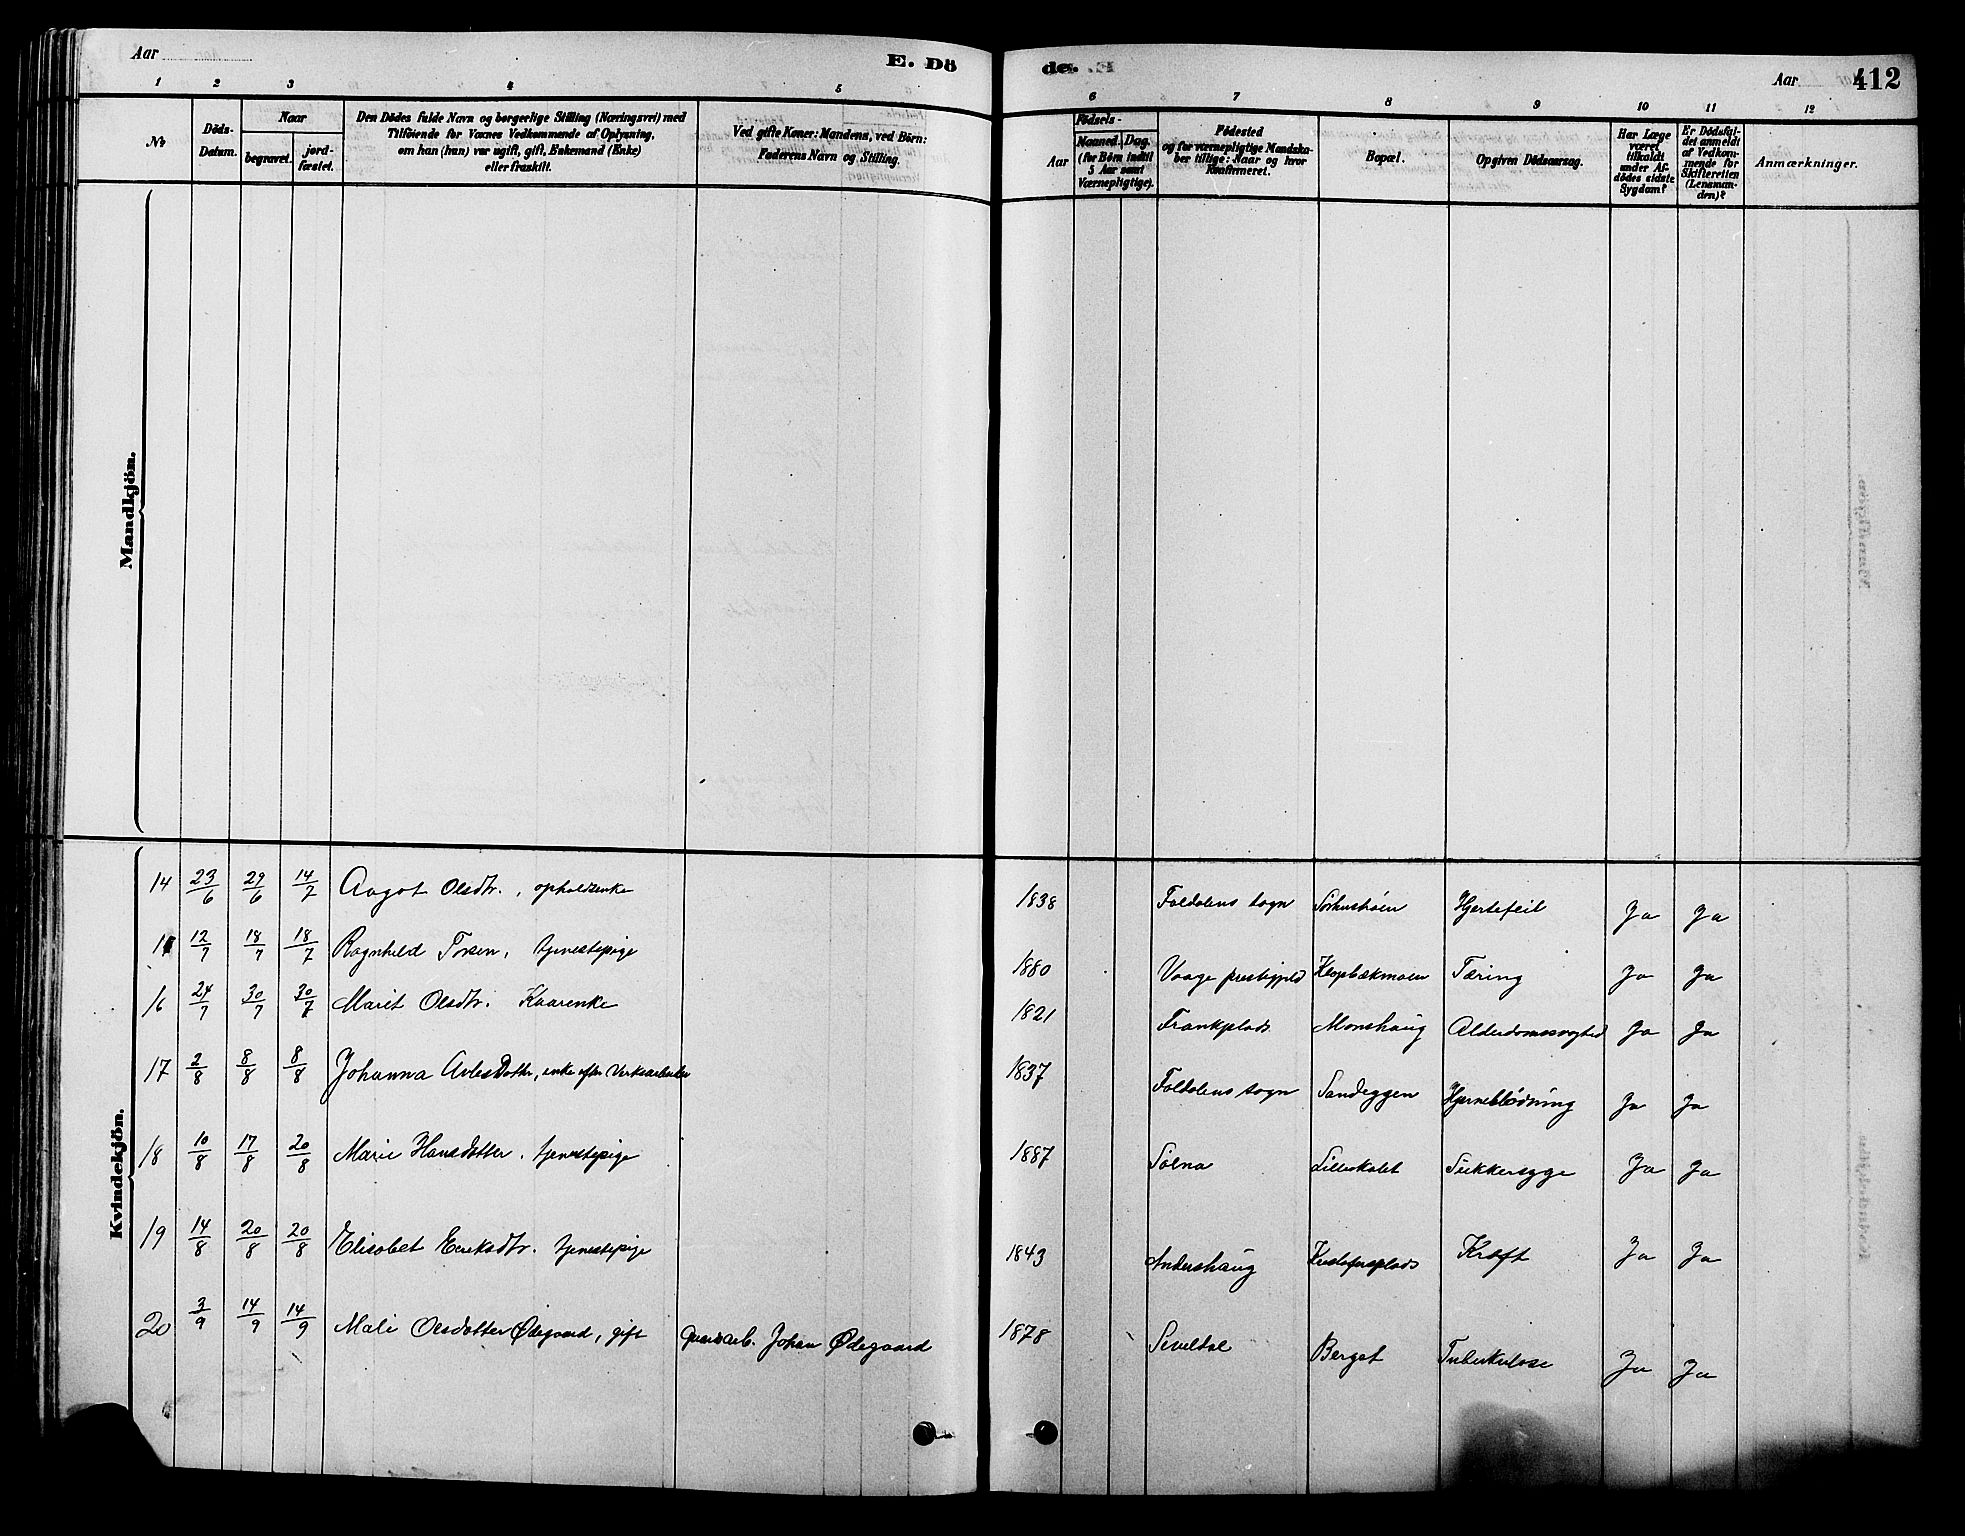 Aar
E. Dö
de.
Aar
412
1 2 3 4 5 6 7 8 9 10 11 12
№
Döds-Datum.
Naar
begravet.
jord-fæstet.
Den Dödes fulde Navn og borgerlige Stilling (Næringsvei) med
Tilföiende for Voxnes Vedkommende af Oplysning,
om han (hun) var ugift, gift, Enkemand (Enke)
eller fraskilt.
Ved gifte Koner: Mandens, ved Börn:
Faderens Navn og Stilling.
Födsels-
Aar
Maaned. Dag.
(for Börn indtil
5 Aar samt
Værnepligtige).
Födested
og for værnepligtige Mandska-
ber tillige: Naar og hvor
Konfirmeret.
Bopæl.
Opgiven Dödsaarsag.
Har Læge
været
tilkaldt
under Af-
dödes sidste
Sygdom?
Er Dödsfal-
det anmeldt
af Vedkom-
mende for
Skifteretten
(Lensman-
den)?
Anmærkninger.
Mandkjön.
Kvindekjön.
14 23/6 29/6 14/7 Aagot Olsdtr., opholdsenke 1838 Foldalens sogn Hjertefeil Ja Ja
12/7 18/7 18/7 Ragnhild tjenestepige 1880 Vaage Tæring Ja Ja
16 24/7 30/7 30/7 Marit Olsdtr. Kaarenke 1821 Frankplads Monshaug Ja Ja
17 2/8 8/8 8/8 Johanna enke efter 1837 Foldalens sogn Sandeggen Hjerneblödning Ja Ja
18 10/8 17/8 20/8 Marie Hansdotter, tjenestepige 1887 Sölna Sukkersyge Ja Ja
19 14/8 20/8 20/8 Elisabet Eeriksdtr. tjenestepige 1843 Andershaug Kræft Ja Ja
20 3/9 14/9 14/9 Mali Olsdotter Ødegaard, gift Johan Ødegaard 1878 Berget Tuberkulose Ja Ja